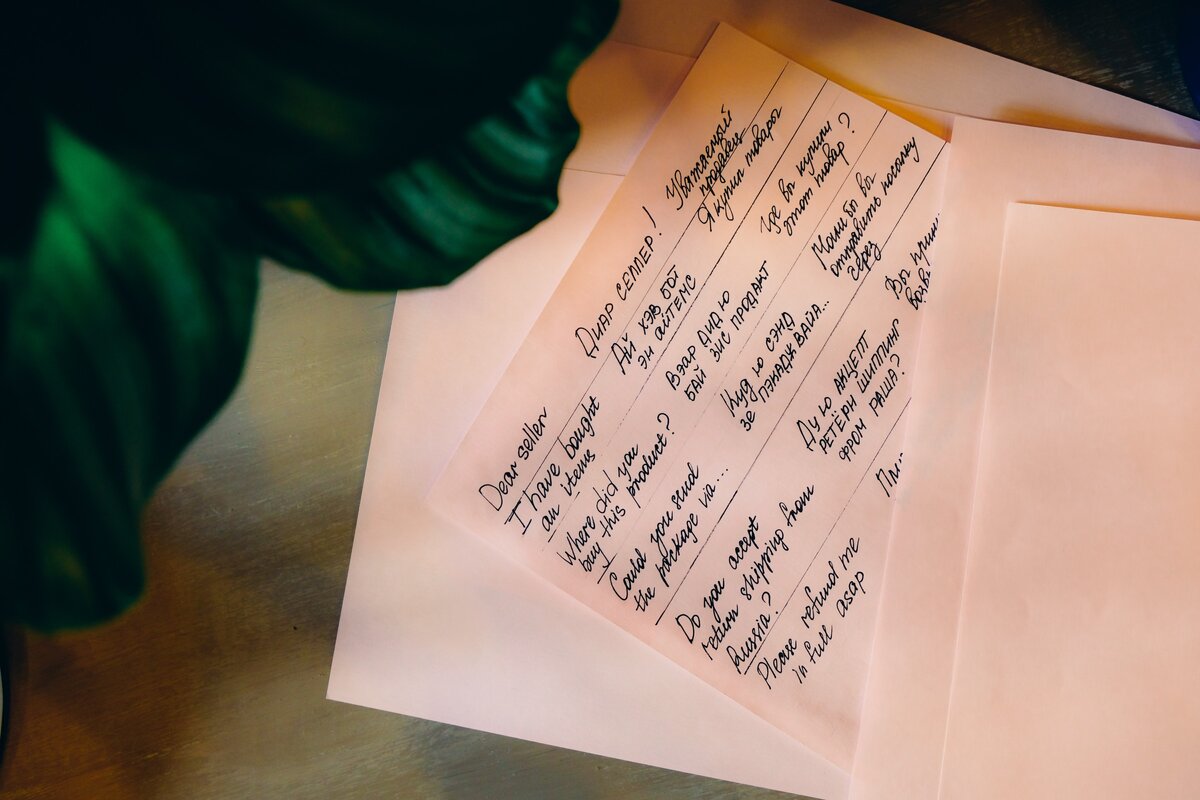 Dear seller
ДИАР СЕЛЛЕР!
Уважаемый
продавец
I have bought
an items
АЙ ХЭВ БОЙ
ЭН АЙТЕМС
Я купил товары
Where did you
buy this product?
ВЭАР ДИД Ю
БАЙ ЗИС ПРОДАКТ
Где вы купили
этот товар?
Could you send
the package via...
КУД Ю СЭНД
ЗЕ ПЭКАДЖ ВАЙА...
отправить посылку
Do you accept
return shipping from
Russia?
ДУ Ю АКЦЕПТ
РЕТЁРН ШИППИНГ
ФРОМ РАША?
Вы
Please refund me
in full asap